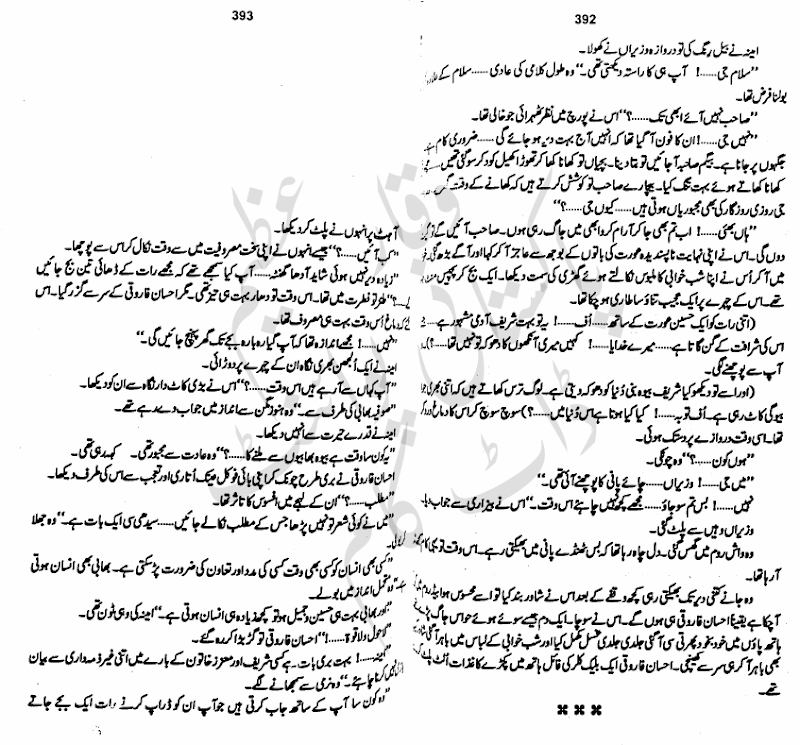 392
امینہ نے بیل رنگ کی تو دروازہ وزیراں نے کھولا۔
”سلام جی......! آپ ہی کا راستہ دیکھتی تھی۔“ وہ طول کلامی کی عادی...... سلام کے علاوہ
بولنا فرض تھا۔
”صاحب نہیں آئے ابھی تک......؟“ اس نے پورچ میں نظر ٹھہرائی جو خالی تھا۔
”نہیں جی......! ان کا فون آ گیا تھا کہ انہیں آج بہت دیر ہو جائے گی...... ضروری کام سے
جگہوں پر جانا ہے۔ بیگم صاحبہ آ جائیں تو بتا دینا۔ بچیاں تو کھانا کھا کر تھوڑا کھیل کود کر سو گئی تھیں
کھانا کھاتے ہوئے بہت تنگ کیا۔ بیچارے صاحب تو کوشش کرتے ہیں کہ کھانے کے وقت گھر
جی روزی روزگار کی بھی مجبوریاں ہوتی ہیں...... کیوں جی......؟“
”ہاں بھئی......! اب تم بھی جا کر آرام کرو ابھی میں جاگ رہی ہوں۔ صاحب آئیں گے تو
دوں گی۔ اس نے اپنی نہایت ناپسندیدہ عورت کی باتوں کے بوجھ سے عاجز آ کر کہا اور آگے بڑھ گئی
میں آ کر اُس نے اپنا شب خوابی کا ملبوس نکالتے ہوئے گھڑی کی سمت دیکھا۔ ایک بج کر پچیس منٹ
تھے۔ اس کے چہرے پر ایک عجیب تناؤ سا طاری ہو چکا تھا۔
(اتنی رات کو ایک حسین عورت کے ساتھ...... اُف......! یہ تو بہت شریف آدمی مشہور ہے
اس کی شرافت کے گن گاتا ہے...... میرے خدایا......! کہیں میری آنکھوں کا دھوکہ تو نہیں تھا......؟)
آپ سے پوچھنے لگی۔
(اور اسے تو دیکھو کیا شریف بیوہ بنی دُنیا کو دھوکہ دیتی ہے۔ لوگ ترس کھاتے ہیں کہ اتنی بھری جوانی
بیوگی کاٹ رہی ہے۔ اُف توبہ......! کیا کیا ہوتا ہے اس دُنیا میں......؟) سوچ سوچ کر اس کا دماغ
تھا۔ اسی وقت دروازے پر دستک ہوئی۔
”ہوں کون......؟“ وہ چونکی۔
”میں جی......! وزیراں...... چائے پانی کا پوچھنے آئی تھی۔“
نہیں......! بس تم سو جاؤ...... مجھے کچھ نہیں چاہئے اس وقت۔“ اس نے بیزاری سے جواب دیا۔
وزیراں وہیں سے پلٹ گئی۔
وہ واش روم میں گھس گئی۔ دل چاہ رہا تھا کہ بس ٹھنڈے پانی میں بھیگتی رہے۔ اس وقت تو یہی کام
آ رہا تھا۔
وہ جانے کتنی دیر تک بھیگتی رہی کچھ وقفے کے بعد اس نے شاور بند کیا تو اسے محسوس ہوا بیڈروم میں
آ چکا ہے یقیناً احسان فاروقی ہی ہوں گے۔ اس نے سوچا۔ ایک دم جیسے سوئے ہوئے حواس جاگ پڑے
ہاتھ پاؤں میں خود بخود پھرتی سی آ گئی جلدی جلدی غسل مکمل کیا اور شب خوابی کے لباس میں باہر آ گئی
بھی باہر آ کر ہی سر سے کھینچی۔ احسان فاروقی ایک بلیک کلر کی فائل ہاتھ میں پکڑے کاغذات اُلٹ پلٹ
تھے۔
⌘ ⌘ ⌘
393
آہٹ پر انہوں نے پلٹ کر دیکھا۔
”کب آئیں......؟“ جیسے انہوں نے اپنی سخت مصروفیت میں سے وقت نکال کر اس سے پوچھا۔
”زیادہ دیر نہیں ہوئی شاید آدھا گھنٹہ...... آپ کیا سمجھے تھے کہ مجھے رات کے ڈھائی تین بج جائیں
گے......؟“ طنز تو فطرت میں تھا۔ اس وقت تو دھار بہت ہی تیز تھی۔ مگر احسان فاروقی کے سر سے گزر گیا۔ اس
لئے کہ دماغ اُس وقت بہت ہی مصروف تھا۔
”نہیں......! مجھے اندازہ تھا کہ آپ گیارہ بارہ بجے تک گھر پہنچ جائیں گی۔“
امینہ نے ایک اُلجھن بھری نگاہ ان کے چہرے پر دوڑائی۔
”آپ کہاں سے آ رہے ہیں اس وقت......؟“ اس نے بڑی کاٹ دار نگاہ سے ان کو دیکھا۔
”صوفیہ بھابی کی طرف سے۔“ وہ ہنوز مگن سے انداز میں جواب دے رہے تھے۔
امینہ نے قدرے حیرت سے انہیں دیکھا۔
”یہ کون سا وقت ہے بیوہ بھابیوں سے ملنے کا......؟“ وہ عادت سے مجبور تھی۔ کہہ رہی تھی۔
احسان فاروقی نے بری طرح چونک کر اپنی بائی فوکل عینک اُتاری اور تعجب سے اس کی طرف دیکھا۔
”مطلب......؟“ ان کے لہجے میں افسوس کا تاثر تھا۔
”میں نے کوئی شعر تو نہیں پڑھا جس کے مطلب نکالے جائیں...... سیدھی سی ایک بات ہے۔“ وہ جھلا

”کسی بھی انسان کو کسی بھی وقت کسی کی مدد اور تعاون کی ضرورت پڑ سکتی ہے۔ بھابی بھی انسان ہوتی
ہے۔“ وہ تحمل انداز میں بولے۔
”اور بھابی بہت ہی حسین و جمیل ہو تو کچھ زیادہ ہی انسان ہوتی ہے۔“ امینہ کی وہی ٹون تھی۔
”لاحول ولا قوۃ......!“ احسان فاروقی تو گڑبڑا کر رہ گئے۔
”امینہ......! بہت بری بات ہے کسی شریف اور معزز خاتون کے بارے میں اتنی غیر ذمہ داری سے بیان
نہیں کرنا چاہئے۔“ وہ نرمی سے سمجھانے لگے۔
”وہ کون سا آپ کے ساتھ جاب کرتی ہیں جو آپ ان کو ڈراپ کرنے رات ایک بجے جاتے